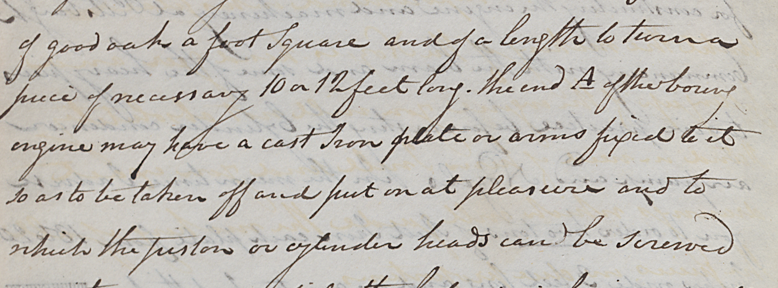 of good oak a foot square and of a length to turn a
piece if necessary 10 or 12 feet long. the end A of the boring
engine may have a cast Iron plate or arms fixed to it
so as to be taken off and put on at pleasure and to
which the piston or cylinder heads can be screwed